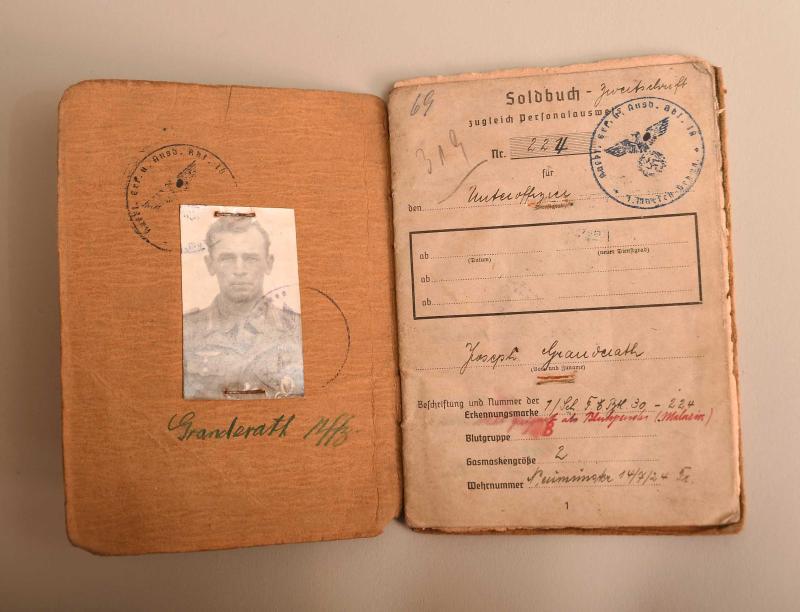 Granderath Uffz.
69
Soldbuch - Zweitschrift
zugleich Personalausweis
319
Nr. 224
für
den Unteroffizier
(Dienstgrad)
ab
(Datum) (neuer Dienstgrad)
ab
ab
Joseph Granderath
(Vor- und Zuname)
Beschriftung und Nummer der
Erkennungsmarke - 224
als Blutspender (Malaria)
Blutgruppe B
Gasmaskengröße 2
Wehrnummer Neumünster 14/7/24
1